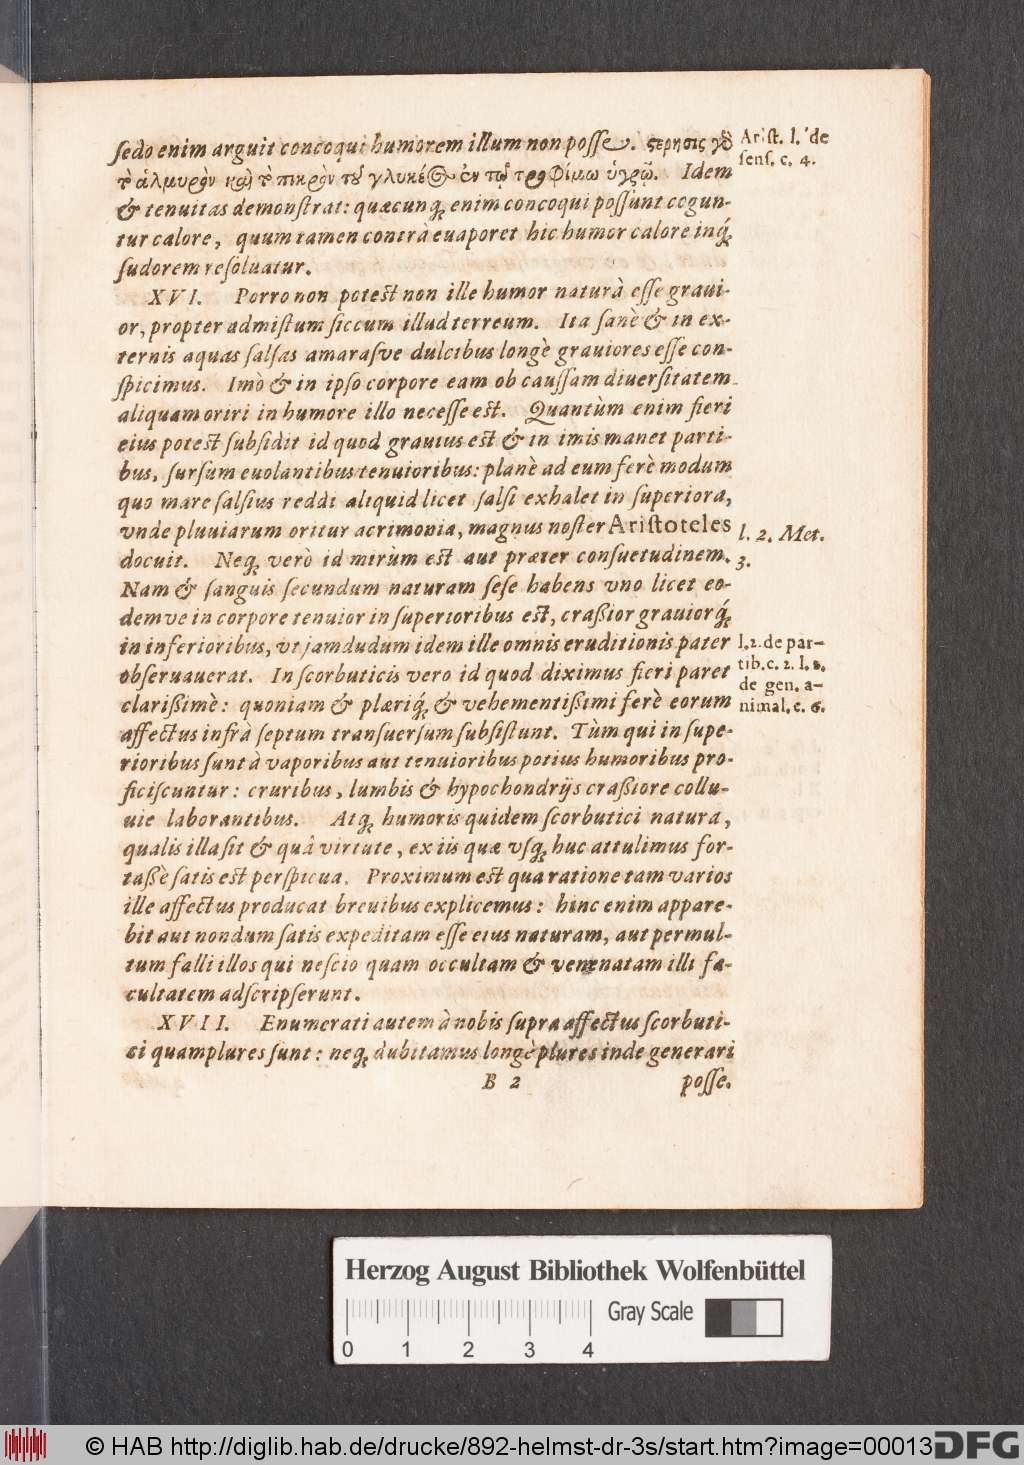 sedo enim arguit concoqui humorem illum non posse. ςερησις γδ̀
τὸ ἁλμυρὸν καὶ τὸ πικρὸν τοῦ γλυκέ@ ἐν τῷ τροφίμῳ ὑγρῷ. Idem
& tenuitas demonſtrat: quæcunq; enim concoqui poſſunt cogun-
tur calore, quum tamen contrà euaporet hic humor calore inq́;
ſudorem reſoluatur.
XVI. Porro non poteſt non ille humor naturà eſſe graui-
or, propter admiſtum ſiccum illud terreum. Ita ſanè & in ex-
ternis aquas ſalſas amaraſve dulcibus longè grauiores eſſe con-
ſpicimus. Imò & in ipſo corpore eam ob cauſſam diuerſitatem
aliquam oriri in humore illo neceſſe eſt. Quantùm enim fieri
eius poteſt ſubſidit id quod grauius eſt & in imis manet parti-
bus, ſurſum euolantibus tenuioribus: planè ad eum ferè modum
quo mare ſalſius reddi aliquid licet ſalſi exhalet in ſuperiora,
vnde pluuiarum oritur acrimonia, magnus noſter Ariſtoteles
docuit. Neq; verò id mirùm eſt aut præter conſuetudinem.
Nam & ſanguis ſecundum naturam ſeſe habens vno licet eo-
demve in corpore tenuior in ſuperioribus eſt, craßior grauiorq́;
in inferioribus, vt jamdudum idem ille omnis eruditionis pater
obſeruauerat. In ſcorbuticis vero id quod diximus fieri paret
clarißimè: quoniam & plæriq́; & vehementißimi ferè eorum
affectus infrà ſeptum tranſuerſum ſubſiſtunt. Tùm qui in ſupe-
rioribus ſunt à vaporibus aut tenuioribus potius humoribus pro-
ficiſcuntur: cruribus, lumbis & hypochondrijs craßiore collu-
uie laborantibus. Atq; humoris quidem ſcorbutici natura,
qualis illa ſit & quâ virtute, ex iis quæ vſq; huc attulimus for-
taßè ſatis eſt perſpicua. Proximum eſt qua ratione tam varios
ille affectus producat breuibus explicemus: hinc enim appare-
bit aut nondum ſatis expeditam eſſe eius naturam, aut permul-
tum falli illos qui neſcio quam occultam & venenatam illi fa-
cultatem adſcripſerunt.
XVII. Enumerati autem à nobis ſupra affectus ſcorbuti-
ci quamplures ſunt: neq; dubitamus longè plures inde generari
B 2 poſſe.
Ariſt. l. de
ſenſ. c. 4.
l. 2. Met.
3.
l. 2. de par-
tib. c. 2. l. 2.
de gen. a-
nimal. c. 6.
Herzog August Bibliothek Wolfenbüttel
0 1 2 3 4 Gray Scale
© HAB http://diglib.hab.de/drucke/892-helmst-dr-3s/start.htm?image=00013
DFG